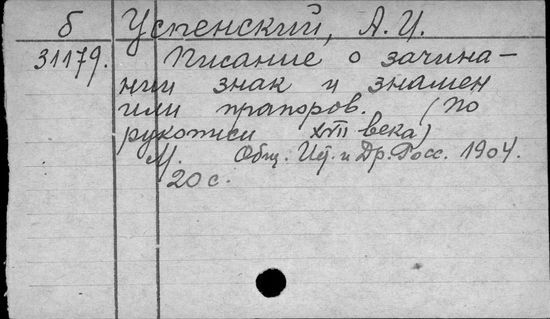 б Успенский, А. И.
31179. Писание о зачина-
нии знак и знамен
или прапоров. (По
рукописи XVII века)
М. Общ. Ист. и Др. Росс. 1904.
20 с.